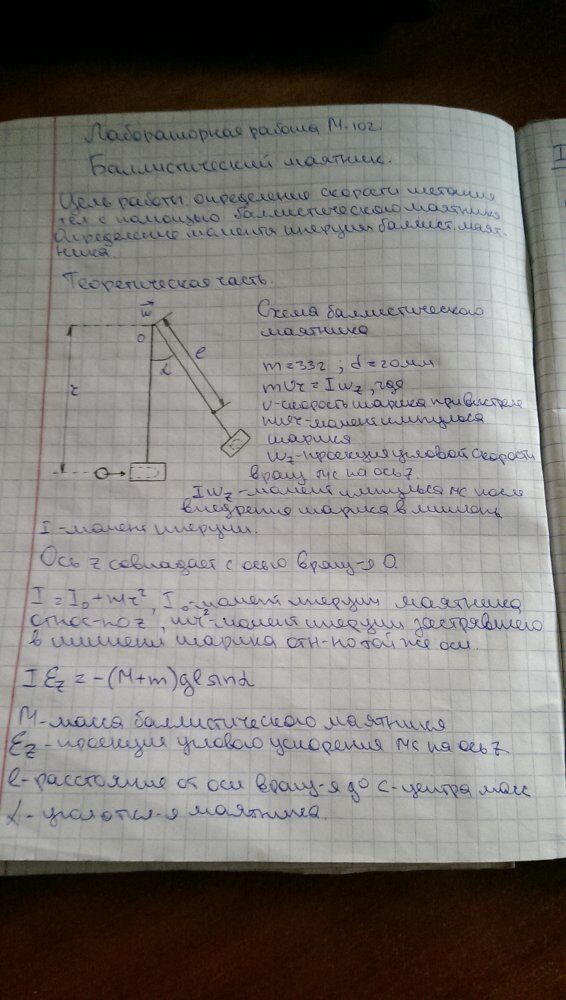 Лабораторная работа М-102.
Баллистический маятник.
Цель работы: определение скорости метания
тел с помощью баллистического маятника
Определение момента инерции баллист. маят-
ника.
Теоретическая часть.
Схема баллистического
маятника
w
O
α
l
r
m=33г ; d=20мм
mvr = Iwz, где
v-скорость шарика при выстреле
mvr-момент импульса
шарика
wz-проекция угловой скорости
вращ мс на ось z.
Iwz-момент импульса мс после
внедрения шарика в мишень
I-момент инерции.
Ось z совпадает с осью вращ-я O.
I = I₀ + mr², I₀-момент инерции маятника
относ-но z, mr²-момент инерции застрявшего
в мишени шарика отн-но той же оси.
I εz = -(M+m)gl sinα
M-масса баллистического маятника
εz-проекция углового ускорения мс на ось z
l-расстояние от оси вращ-я до C-центра масс
α-угол откл-я маятника.
I